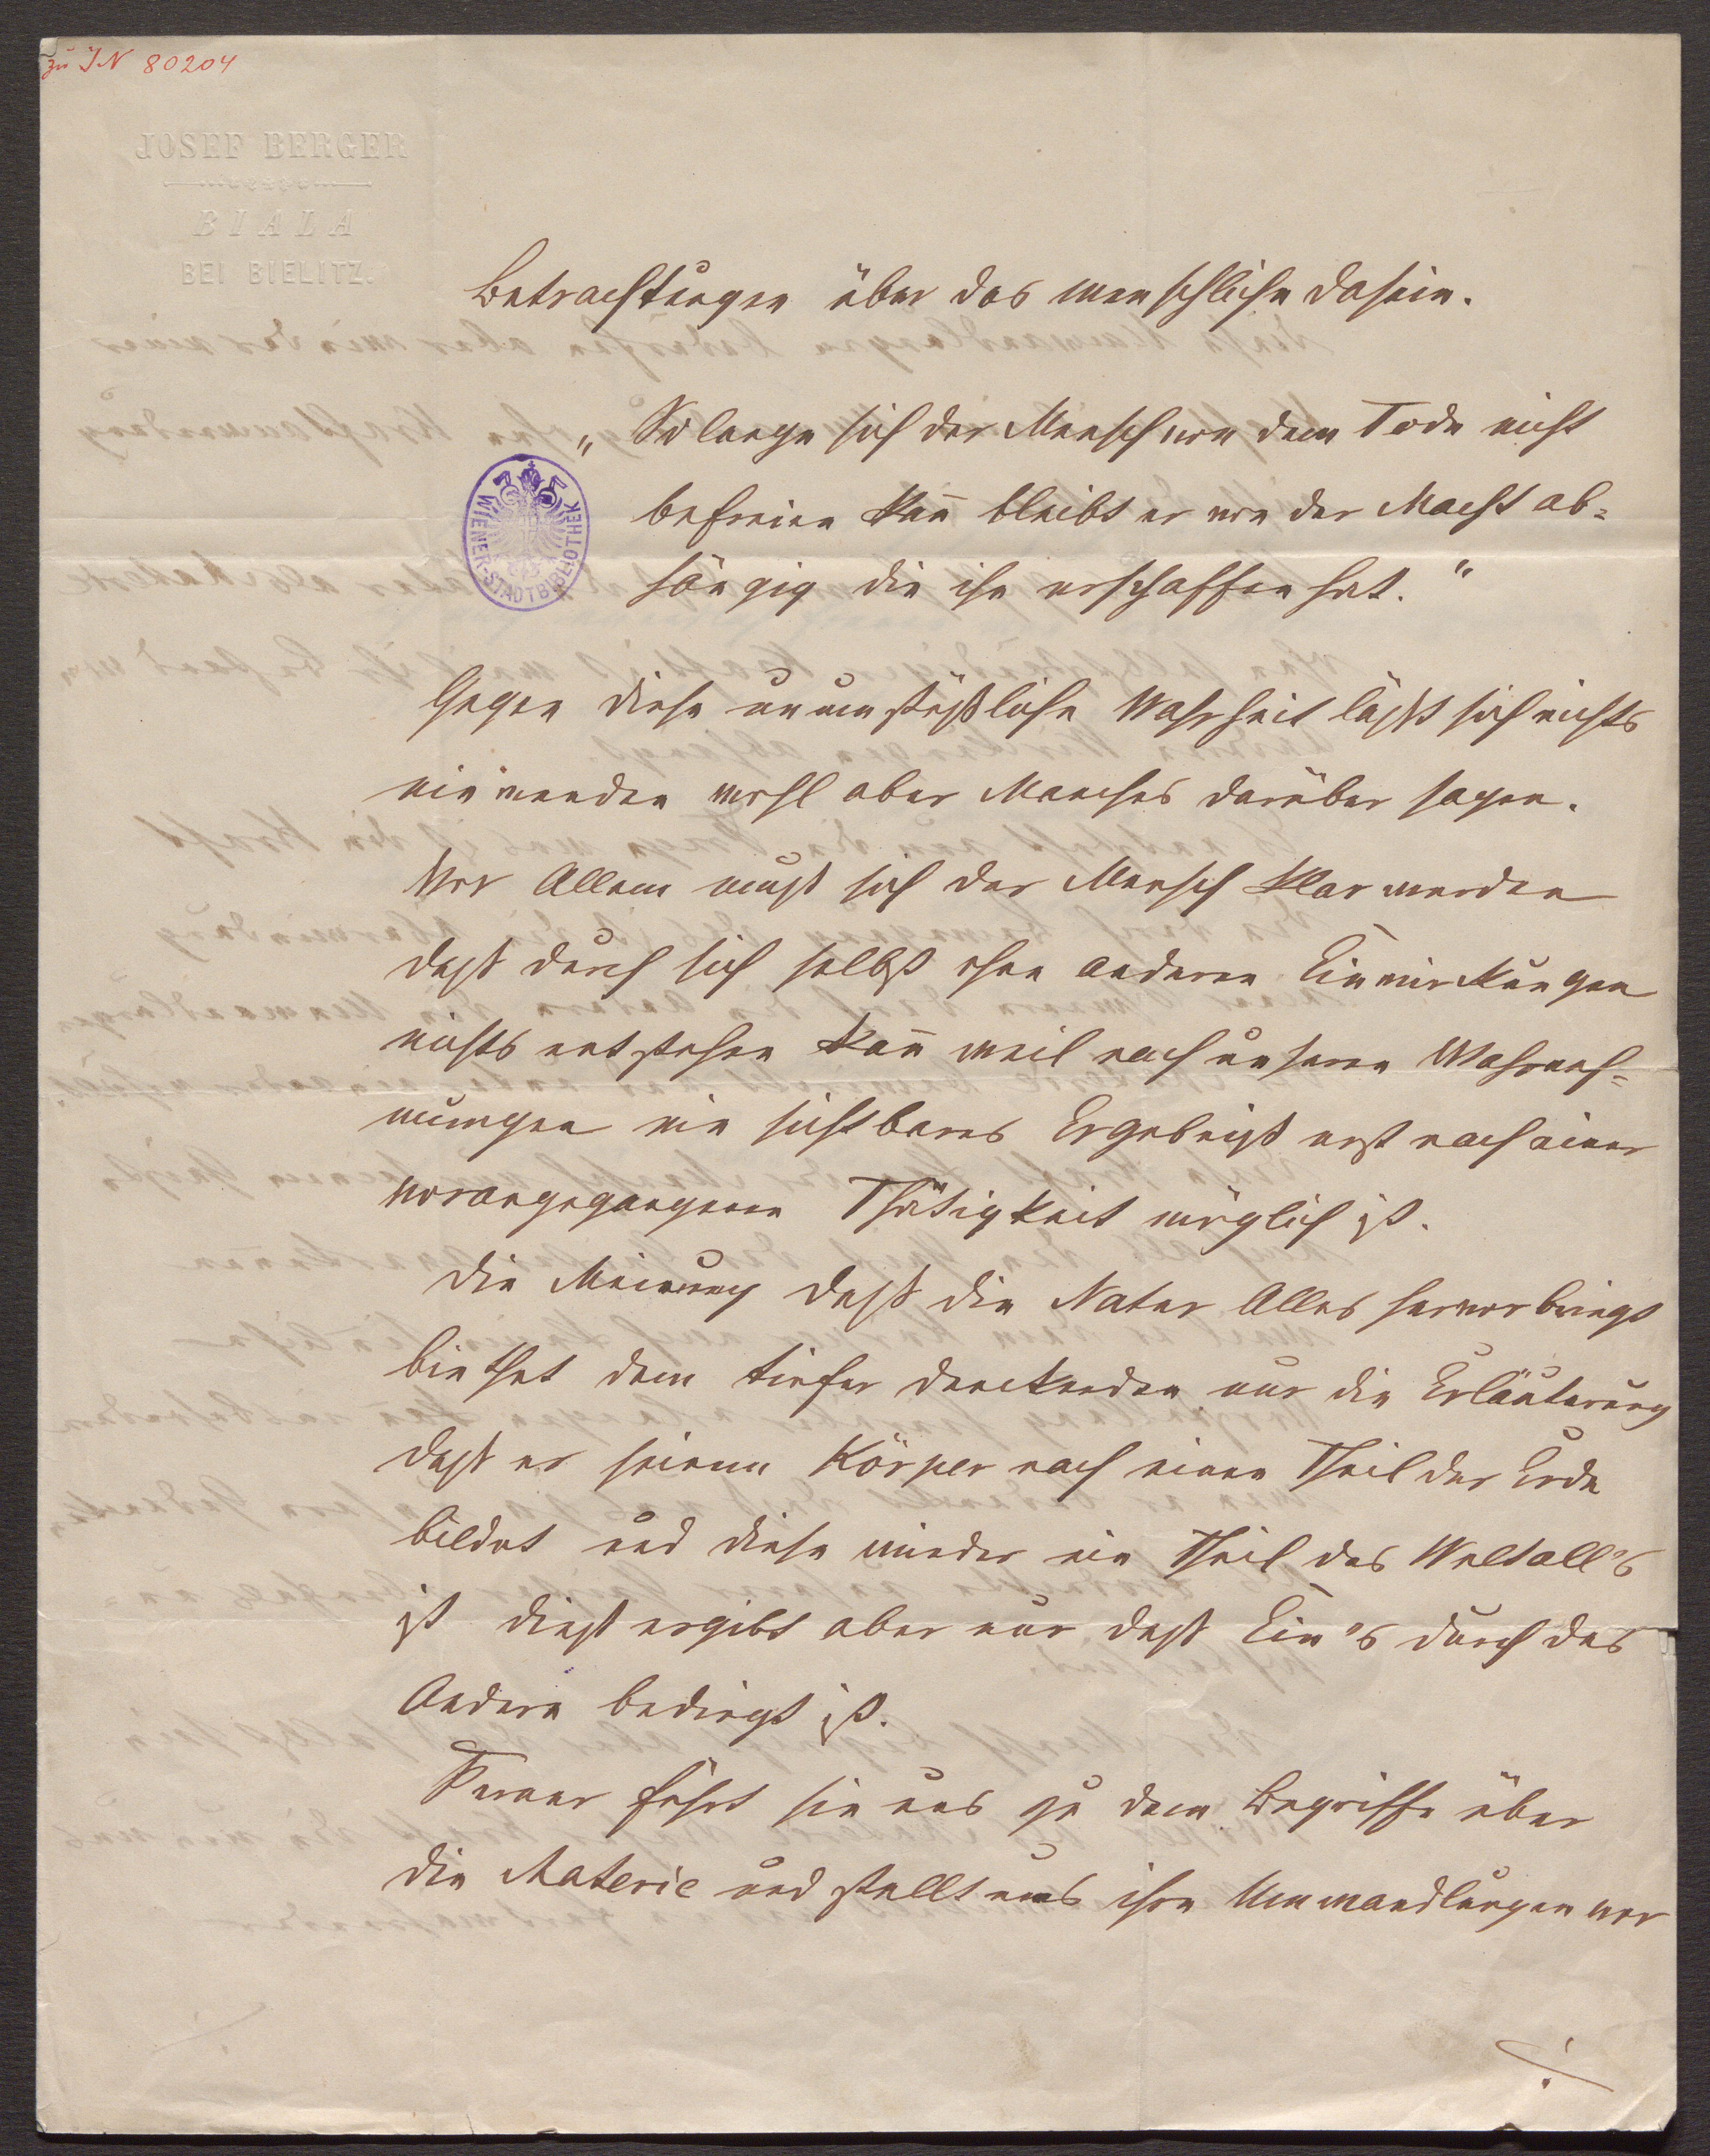 zu IN 80204
JOSEF BERGER
BIALA
BEI BIELITZ.
Betrachtungen über das menschliche Dasein.
„So lange sich der Mensch von dem Tode nicht
befreien kan̄ bleibt er von der Macht ab=
hängig die ihn erschaffen hat."
WIENER-STADTBIBLIOTHEK
Gegen diese unumstößliche Wahrheit läßt sich nichts
einwenden wohl aber Manches darüber sagen.
Vor Allem muß sich der Mensch klar werden
daß durch sich selbst ohne anderen Einwirkungen
nichts entstehen kan̄ weil nach unseren Wahrneh=
mungen ein sichtbares Ergebniß erst nach einer
vorangegangenen Thätigkeit möglich ist.
Die Meinung daß die Natur Alles hervorbringt
biethet dem tiefer denckenden nur die Erläuterung
daß er seinem Körper nach einen Theil der Erde
bildet und diese wieder ein Theil des Weltall's
ist dieß ergibt aber nur daß Ein's durch das
Andere bedingt ist.
Ferner führt sie uns zu dem Begriffe über
die Materie und stellt uns ihre Umwandlungen vor
./.